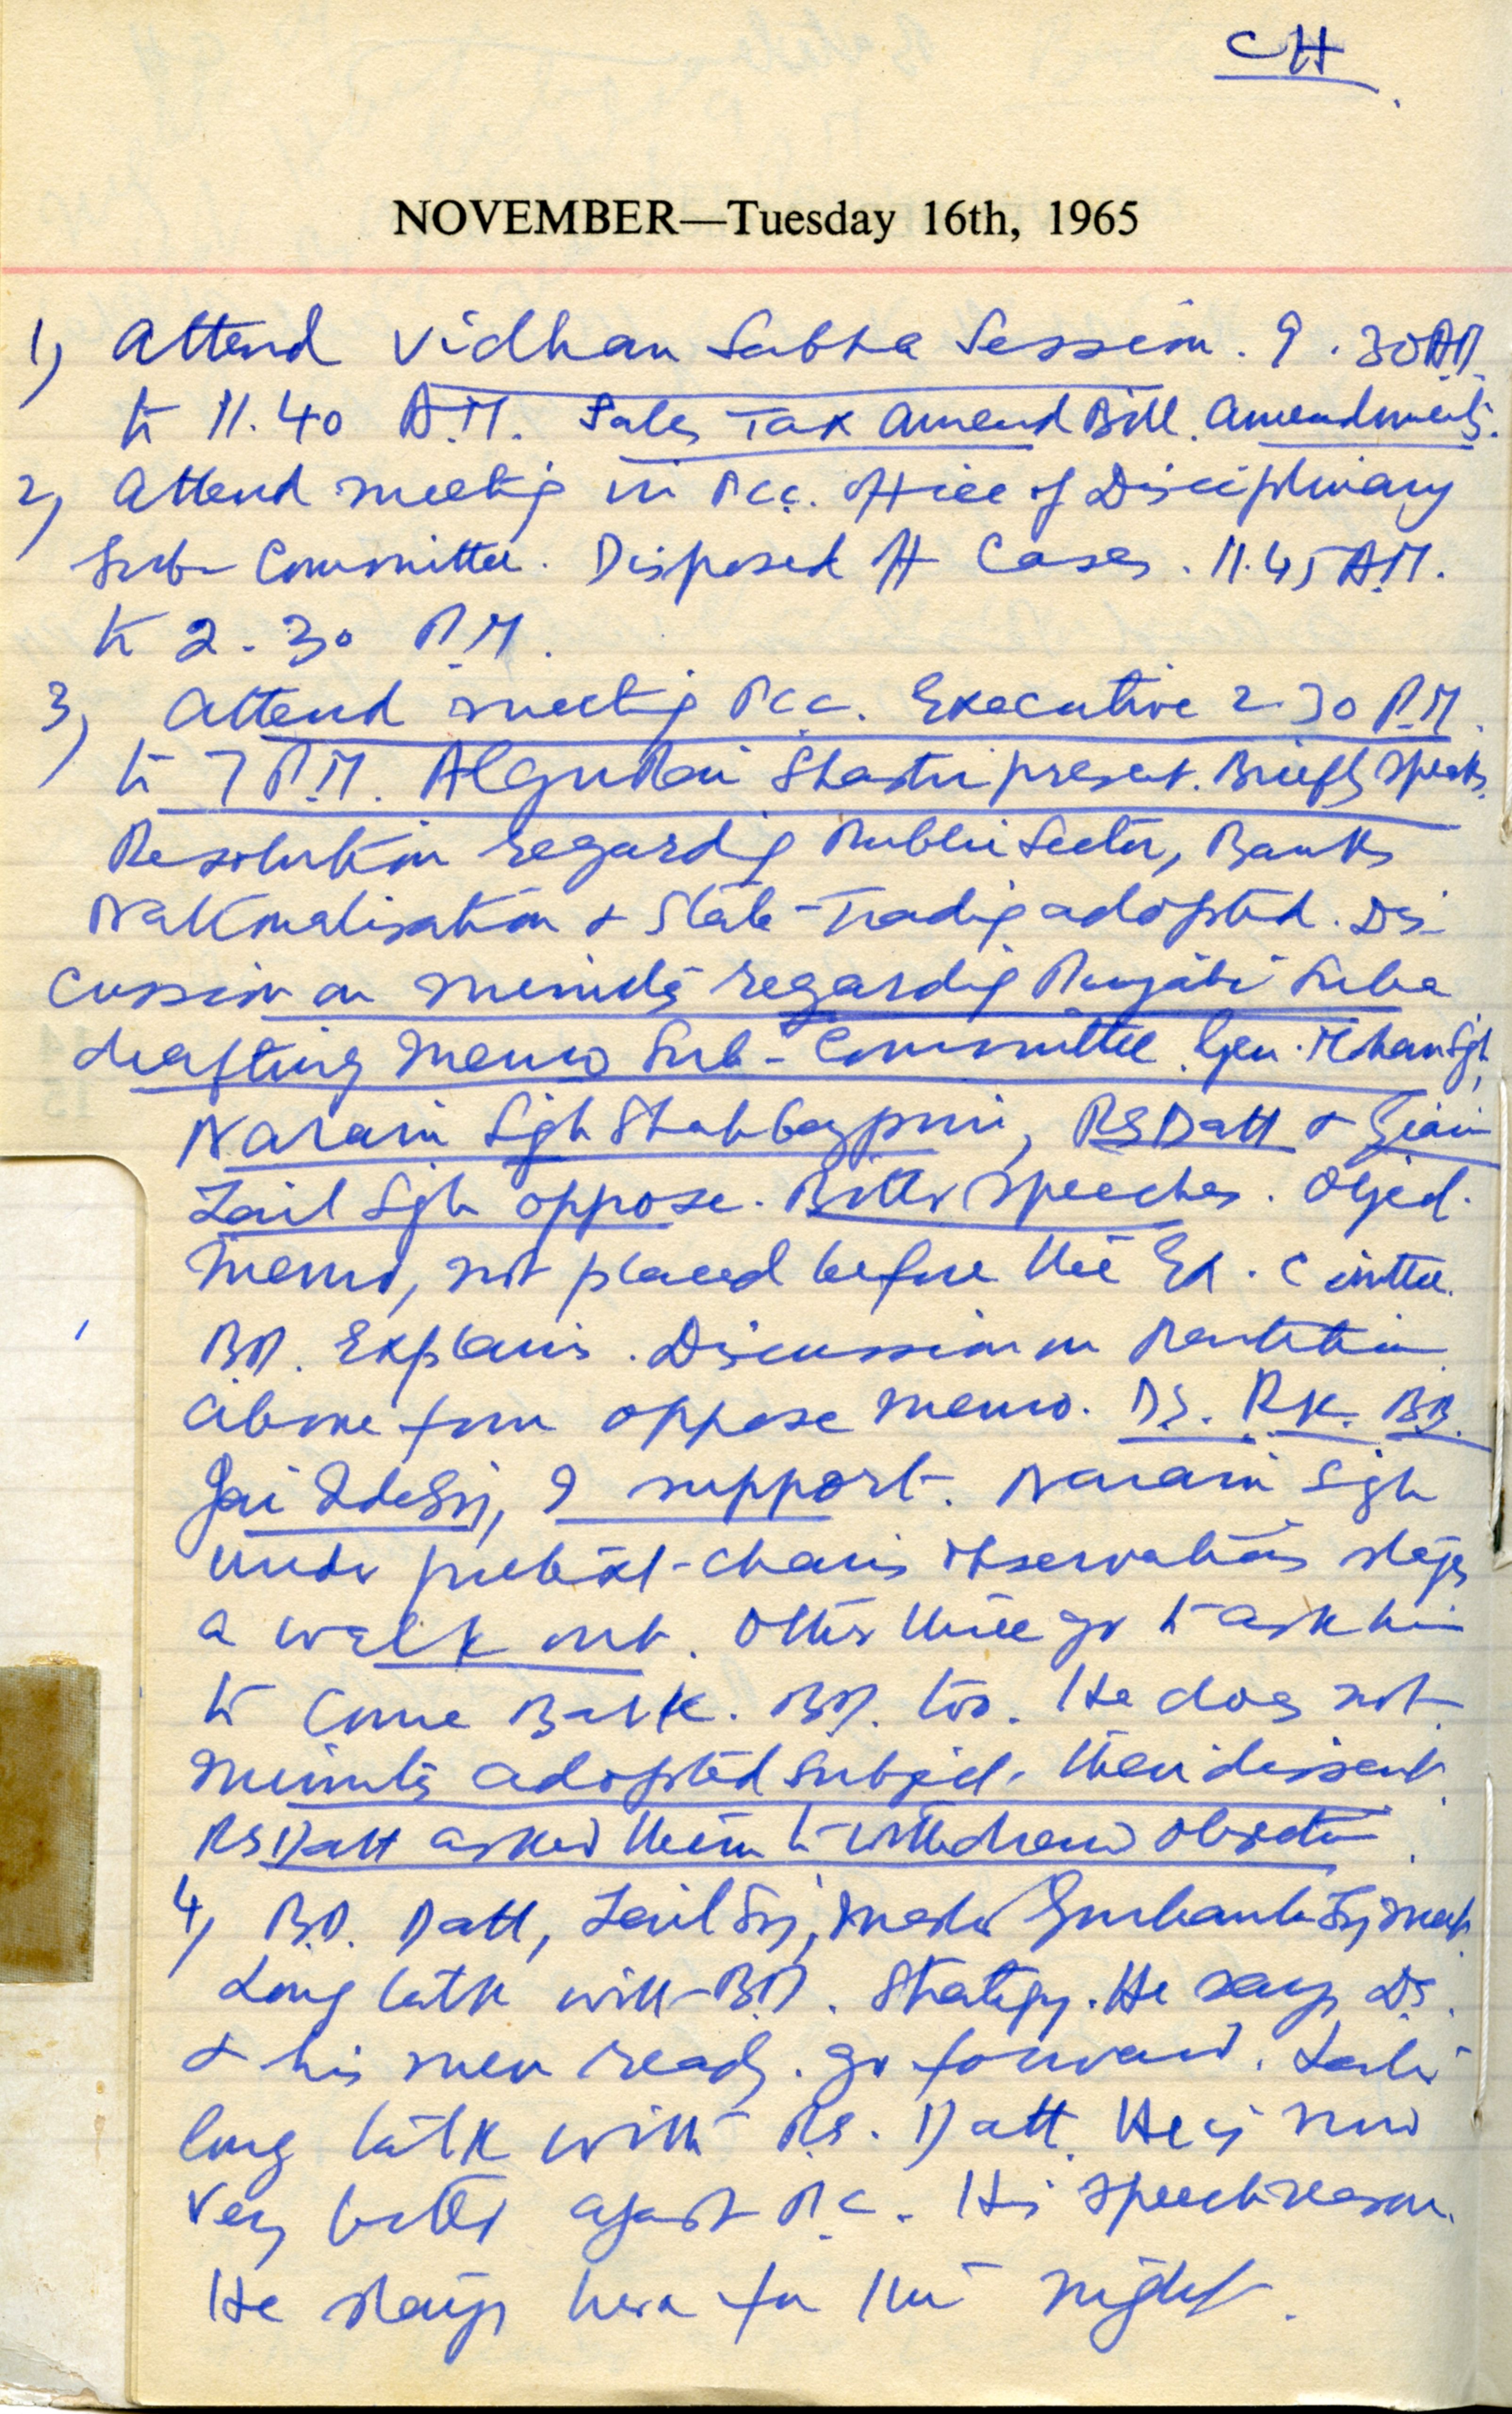 CH
NOVEMBER—Tuesday 16th, 1965
1) Attend Vidhan Sabha Session. 9.30 AM
to 11.40 A.M. Sales Tax Amend Bill. Amendments.
2) Attend meeting in PCC. Office of Disciplinary
Sub-Committee. Disposed off Cases. 11.45 A.M.
to 2.30 P.M.
3) Attend meeting PCC. Executive 2.30 P.M.
to 7 P.M. Algu Rai Shastri present. Briefly speaks.
Resolution regarding Public Sector, Banks
Nationalisation & State-Trading adopted. Dis-
cussion on minutes regarding Punjabi Suba
drafting memo Sub-Committee. Gen. Mohan Sgh,
Narain Sgh Shahbazpuri, RS Datt & Giani
Zail Sgh oppose. Bitter speeches. Object.
Memo, not placed before the Ex. Cmttee.
BD. Explains. Discussion on
above four oppose memo. DS. RK. BD.
Jai Inder Sij, I support. Narain Sigh
under pretext-chairs observations stages
a walk out. Other three go to ask him
to come Back. BD. too. He does not.
Minutes adopted subject. their dissent.
RS Datt asked them to withdraw objection.
4) BD. Datt, Zail Sij, Master Gurbanta Sij meet.
Long talk with BD. Strategy. He says DS.
& his men ready. go forward. Later
long talk with RS. Datt. He is now
very bitter against PC. His speech reason.
He stays here for the night.